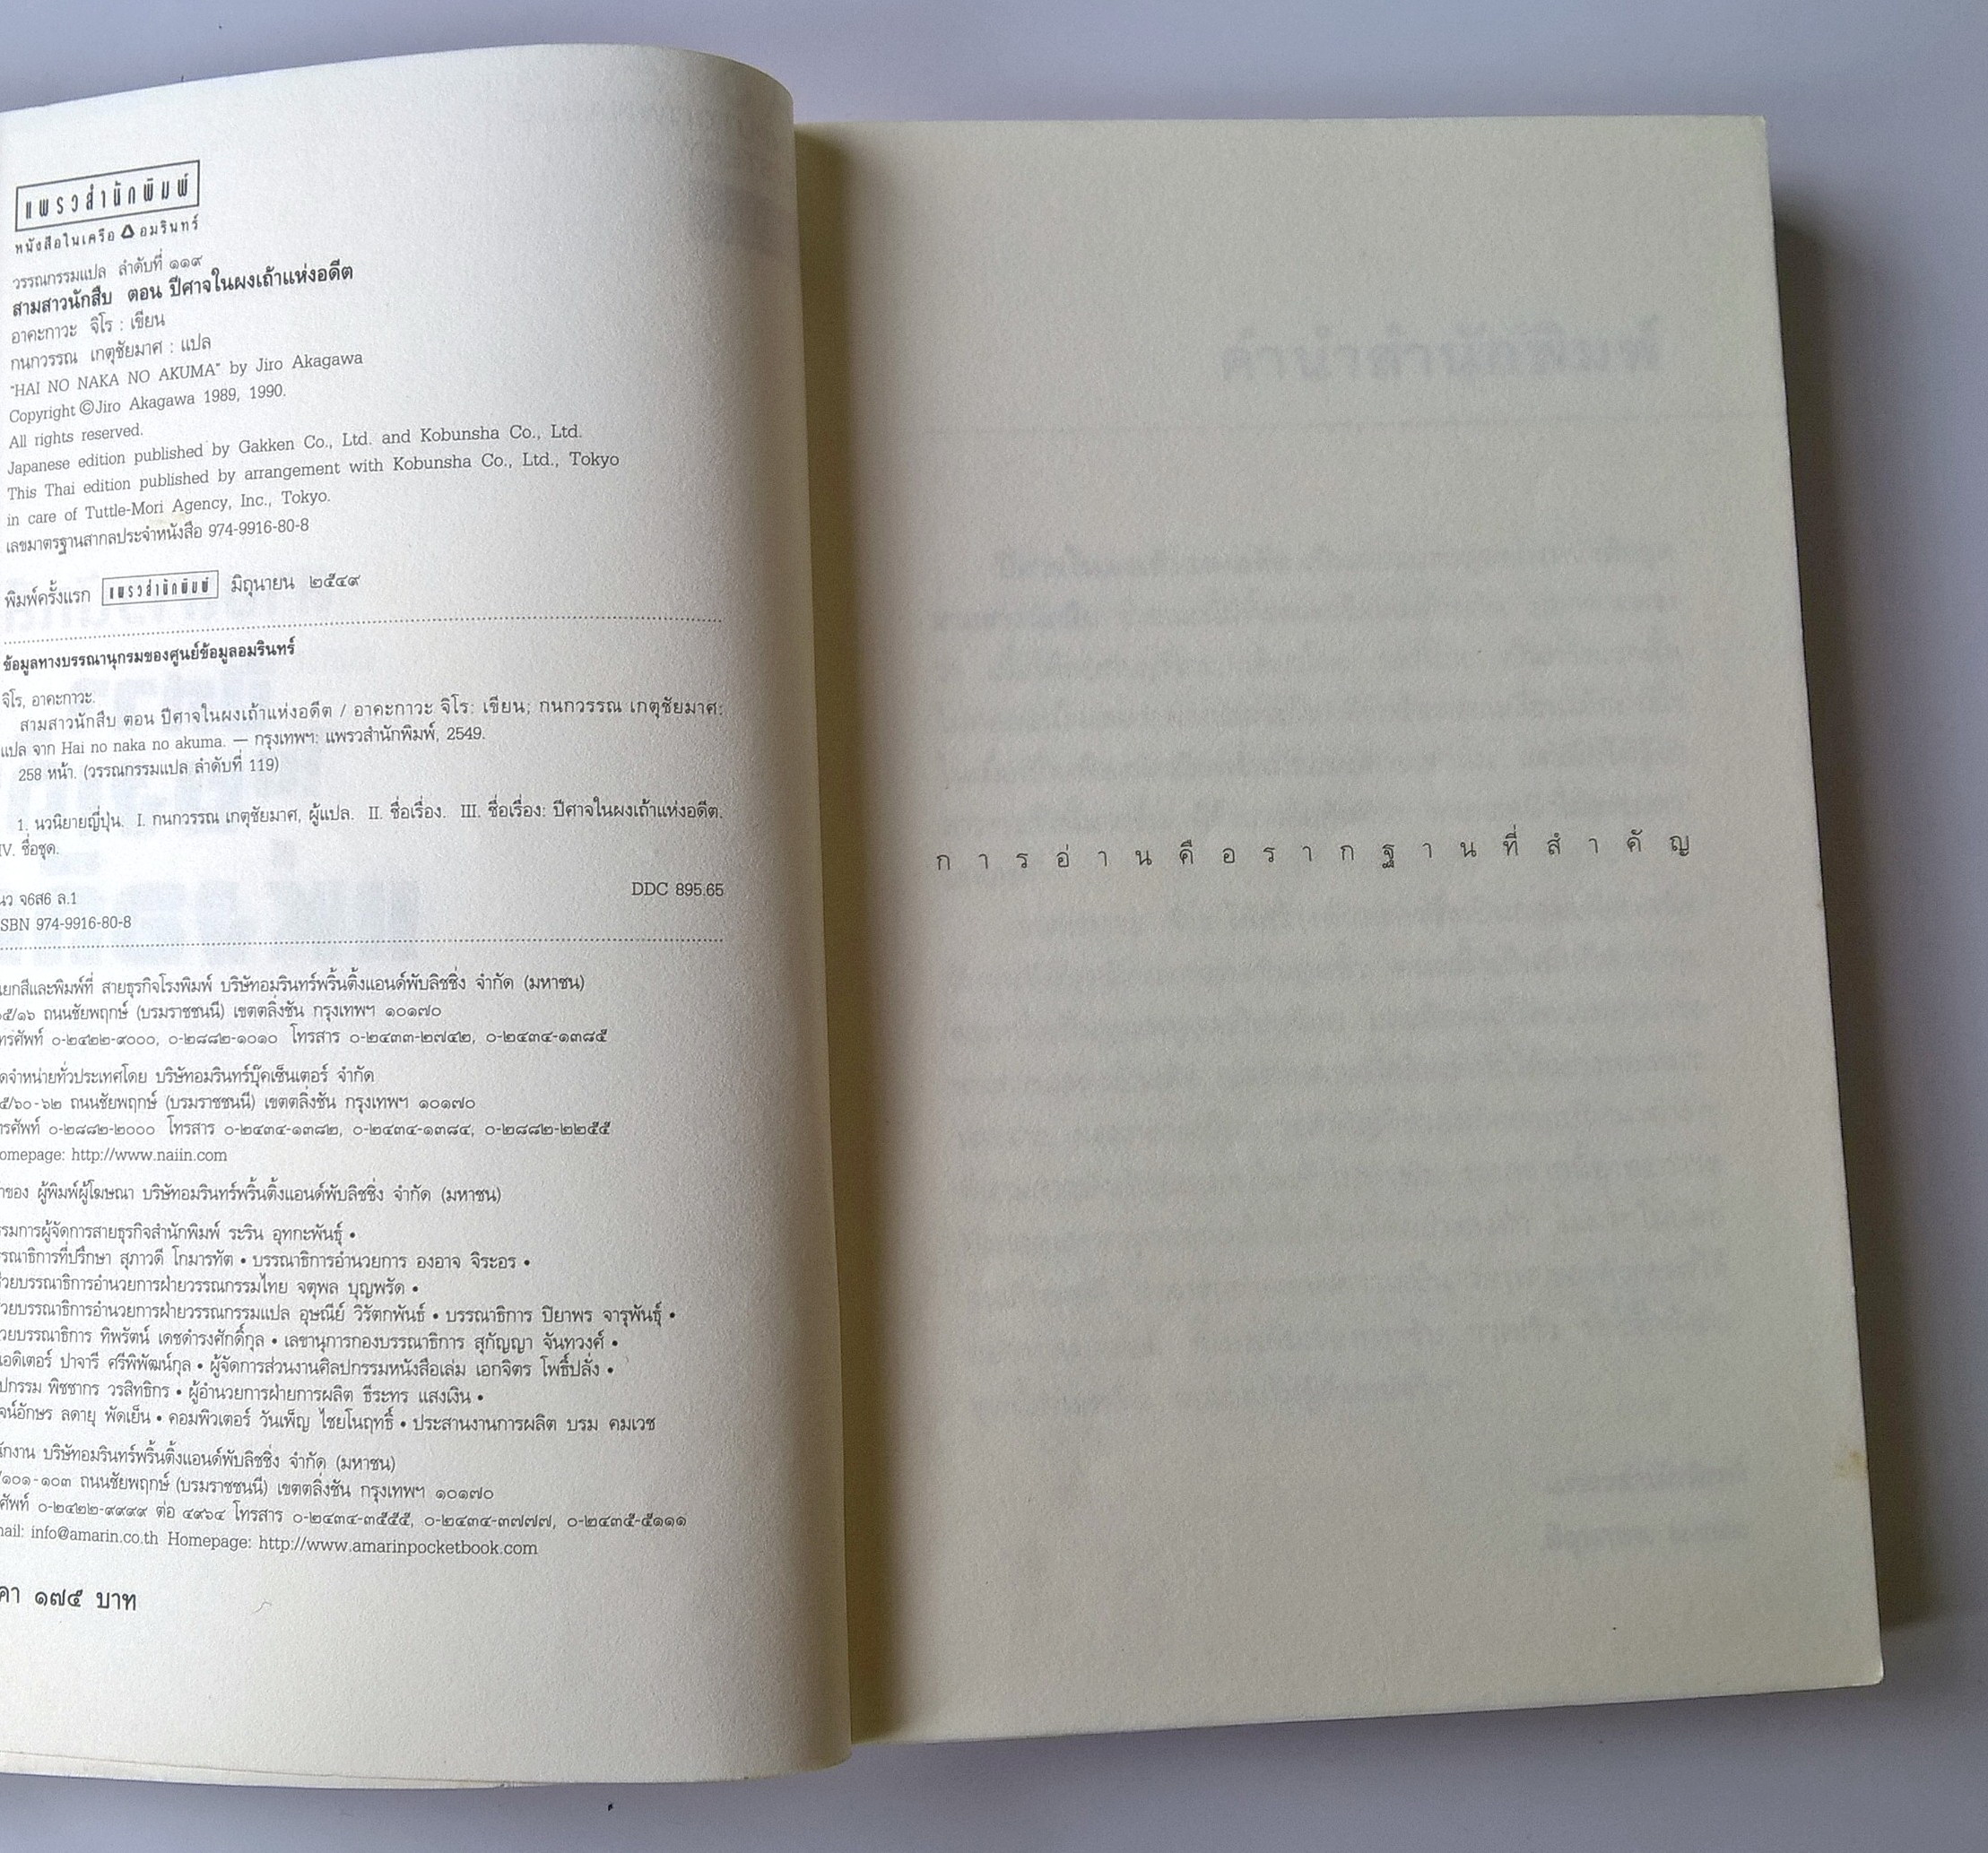 แพรวสำนักพิมพ์
หนังสือในเครือ อมรินทร์
วรรณกรรมแปล ลำดับที่ ๑๑๙
สามสาวนักสืบ ตอน ปีศาจในผงเถ้าแห่งอดีต
อาคะกาวะ จิโร : เขียน
กนกวรรณ เกตุชัยมาศ : แปล
"HAI NO NAKA NO AKUMA" by Jiro Akagawa
Copyright ©Jiro Akagawa 1989, 1990.
All rights reserved.
Japanese edition published by Gakken Co., Ltd. and Kobunsha Co., Ltd.
This Thai edition published by arrangement with Kobunsha Co., Ltd., Tokyo
in care of Tuttle-Mori Agency, Inc., Tokyo.
เลขมาตรฐานสากลประจำหนังสือ 974-9916-80-8
พิมพ์ครั้งแรก แพรวสำนักพิมพ์ มิถุนายน ๒๕๔๙
ข้อมูลทางบรรณานุกรมของศูนย์ข้อมูลอมรินทร์
จิโร, อาคะกาวะ.
สามสาวนักสืบ ตอน ปีศาจในผงเถ้าแห่งอดีต / อาคะกาวะ จิโร: เขียน; กนกวรรณ เกตุชัยมาศ:
แปล จาก Hai no naka no akuma. — กรุงเทพฯ: แพรวสำนักพิมพ์, 2549.
258 หน้า. (วรรณกรรมแปล ลำดับที่ 119)
1. นวนิยายญี่ปุ่น. I. กนกวรรณ เกตุชัยมาศ, ผู้แปล. II. ชื่อเรื่อง. III. ชื่อเรื่อง: ปีศาจในผงเถ้าแห่งอดีต.
IV. ชื่อชุด.
นว จ6ส6 ล.1 DDC 895.65
SBN 974-9916-80-8
แยกสีและพิมพ์ที่ สายธุรกิจโรงพิมพ์ บริษัทอมรินทร์พริ้นติ้งแอนด์พับลิชชิ่ง จำกัด (มหาชน)
๖๕/๑๖ ถนนชัยพฤกษ์ (บรมราชชนนี) เขตตลิ่งชัน กรุงเทพฯ ๑๐๑๗๐
ทรศัพท์ ๐-๒๔๒๒-๙๐๐๐, ๐-๒๘๘๒-๑๐๑๐ โทรสาร ๐-๒๔๓๓-๒๗๔๒, ๐-๒๔๓๔-๑๓๘๕
ดจำหน่ายทั่วประเทศโดย บริษัทอมรินทร์บุ๊คเซ็นเตอร์ จำกัด
๕/๖๐-๖๒ ถนนชัยพฤกษ์ (บรมราชชนนี) เขตตลิ่งชัน กรุงเทพฯ ๑๐๑๗๐
รศัพท์ ๐-๒๘๘๒-๒๐๐๐ โทรสาร ๐-๒๔๓๔-๑๓๘๒, ๐-๒๔๓๔-๑๓๘๔, ๐-๒๘๘๒-๒๒๕๕
omepage: http://www.naiin.com
าของ ผู้พิมพ์ผู้โฆษณา บริษัทอมรินทร์พริ้นติ้งแอนด์พับลิชชิ่ง จำกัด (มหาชน)
รมการผู้จัดการสายธุรกิจสำนักพิมพ์ ระริน อุทกะพันธุ์ •
รณาธิการที่ปรึกษา สุภาวดี โกมารทัต • บรรณาธิการอำนวยการ องอาจ จิระอร •
วยบรรณาธิการอำนวยการฝ่ายวรรณกรรมไทย จตุพล บุญพรัด •
วยบรรณาธิการอำนวยการฝ่ายวรรณกรรมแปล อุษณีย์ วิรัตกพันธ์ • บรรณาธิการ ปิยาพร จารุพันธุ์ •
วยบรรณาธิการ ทิพรัตน์ เดชดำรงศักดิ์กุล • เลขานุการกองบรรณาธิการ สุกัญญา จันทวงศ์ •
เอดิเตอร์ ปาจารี ศรีพิพัฒน์กุล • ผู้จัดการส่วนงานศิลปกรรมหนังสือเล่ม เอกจิตร โพธิ์ปลั่ง •
ปกรรม พิชชากร วรสิทธิกร • ผู้อำนวยการฝ่ายการผลิต ธีระทร แสงเงิน •
จน์อักษร ลดายุ พัดเย็น • คอมพิวเตอร์ วันเพ็ญ ไชยโนฤทธิ์ • ประสานงานการผลิต บรม คมเวช
ักงาน บริษัทอมรินทร์พริ้นติ้งแอนด์พับลิชชิ่ง จำกัด (มหาชน)
/๑๐๑-๑๐๓ ถนนชัยพฤกษ์ (บรมราชชนนี) เขตตลิ่งชัน กรุงเทพฯ ๑๐๑๗๐
ศัพท์ ๐-๒๔๒๒-๙๙๙๙ ต่อ ๔๙๖๔ โทรสาร ๐-๒๔๓๔-๓๕๕๕, ๐-๒๔๓๔-๓๗๗๗, ๐-๒๔๓๕-๕๑๑๑
nail: info@amarin.co.th Homepage: http://www.amarinpocketbook.com
คา ๑๗๕ บาท
การอ่านคือรากฐานที่สำคัญ